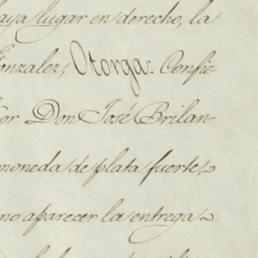 aya lugar en derecho, la
Gonzalez, Otorga: Confie-
or Don José Brilan-
moneda de plata fuerte,
no aparecer la entrega